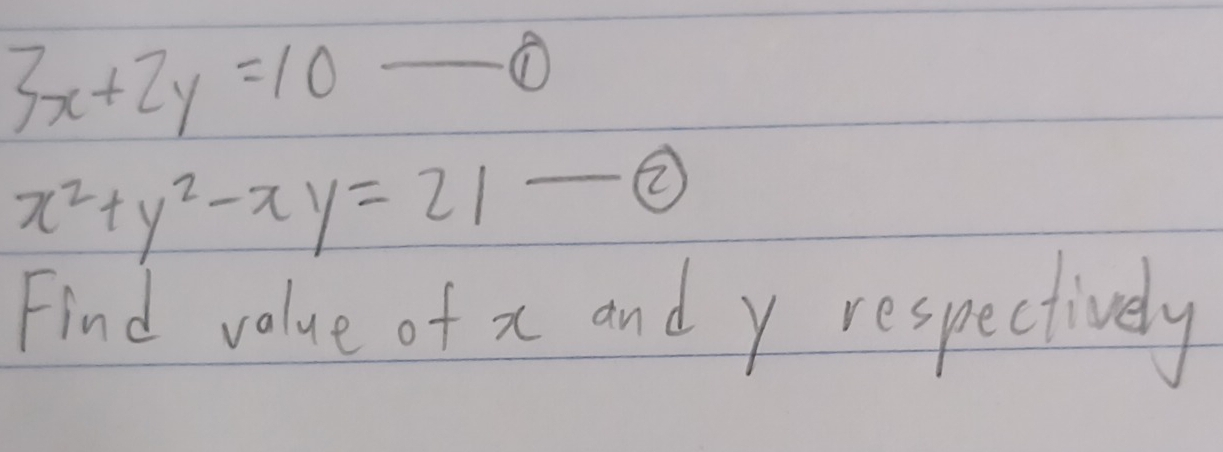 3x+2y=10 —①
x²+y²-xy=21 —②
Find value of x and y respectively